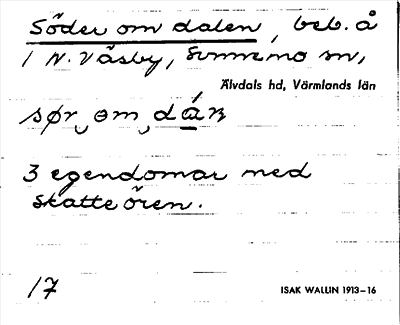 Söder om dalen, beb. å
1 N. Väsby, Sunnemo sn,
Älvdals hd, Värmlands län
sør om dán
3 egendomar med
skatteören.
17
ISAK WALLIN 1913–16